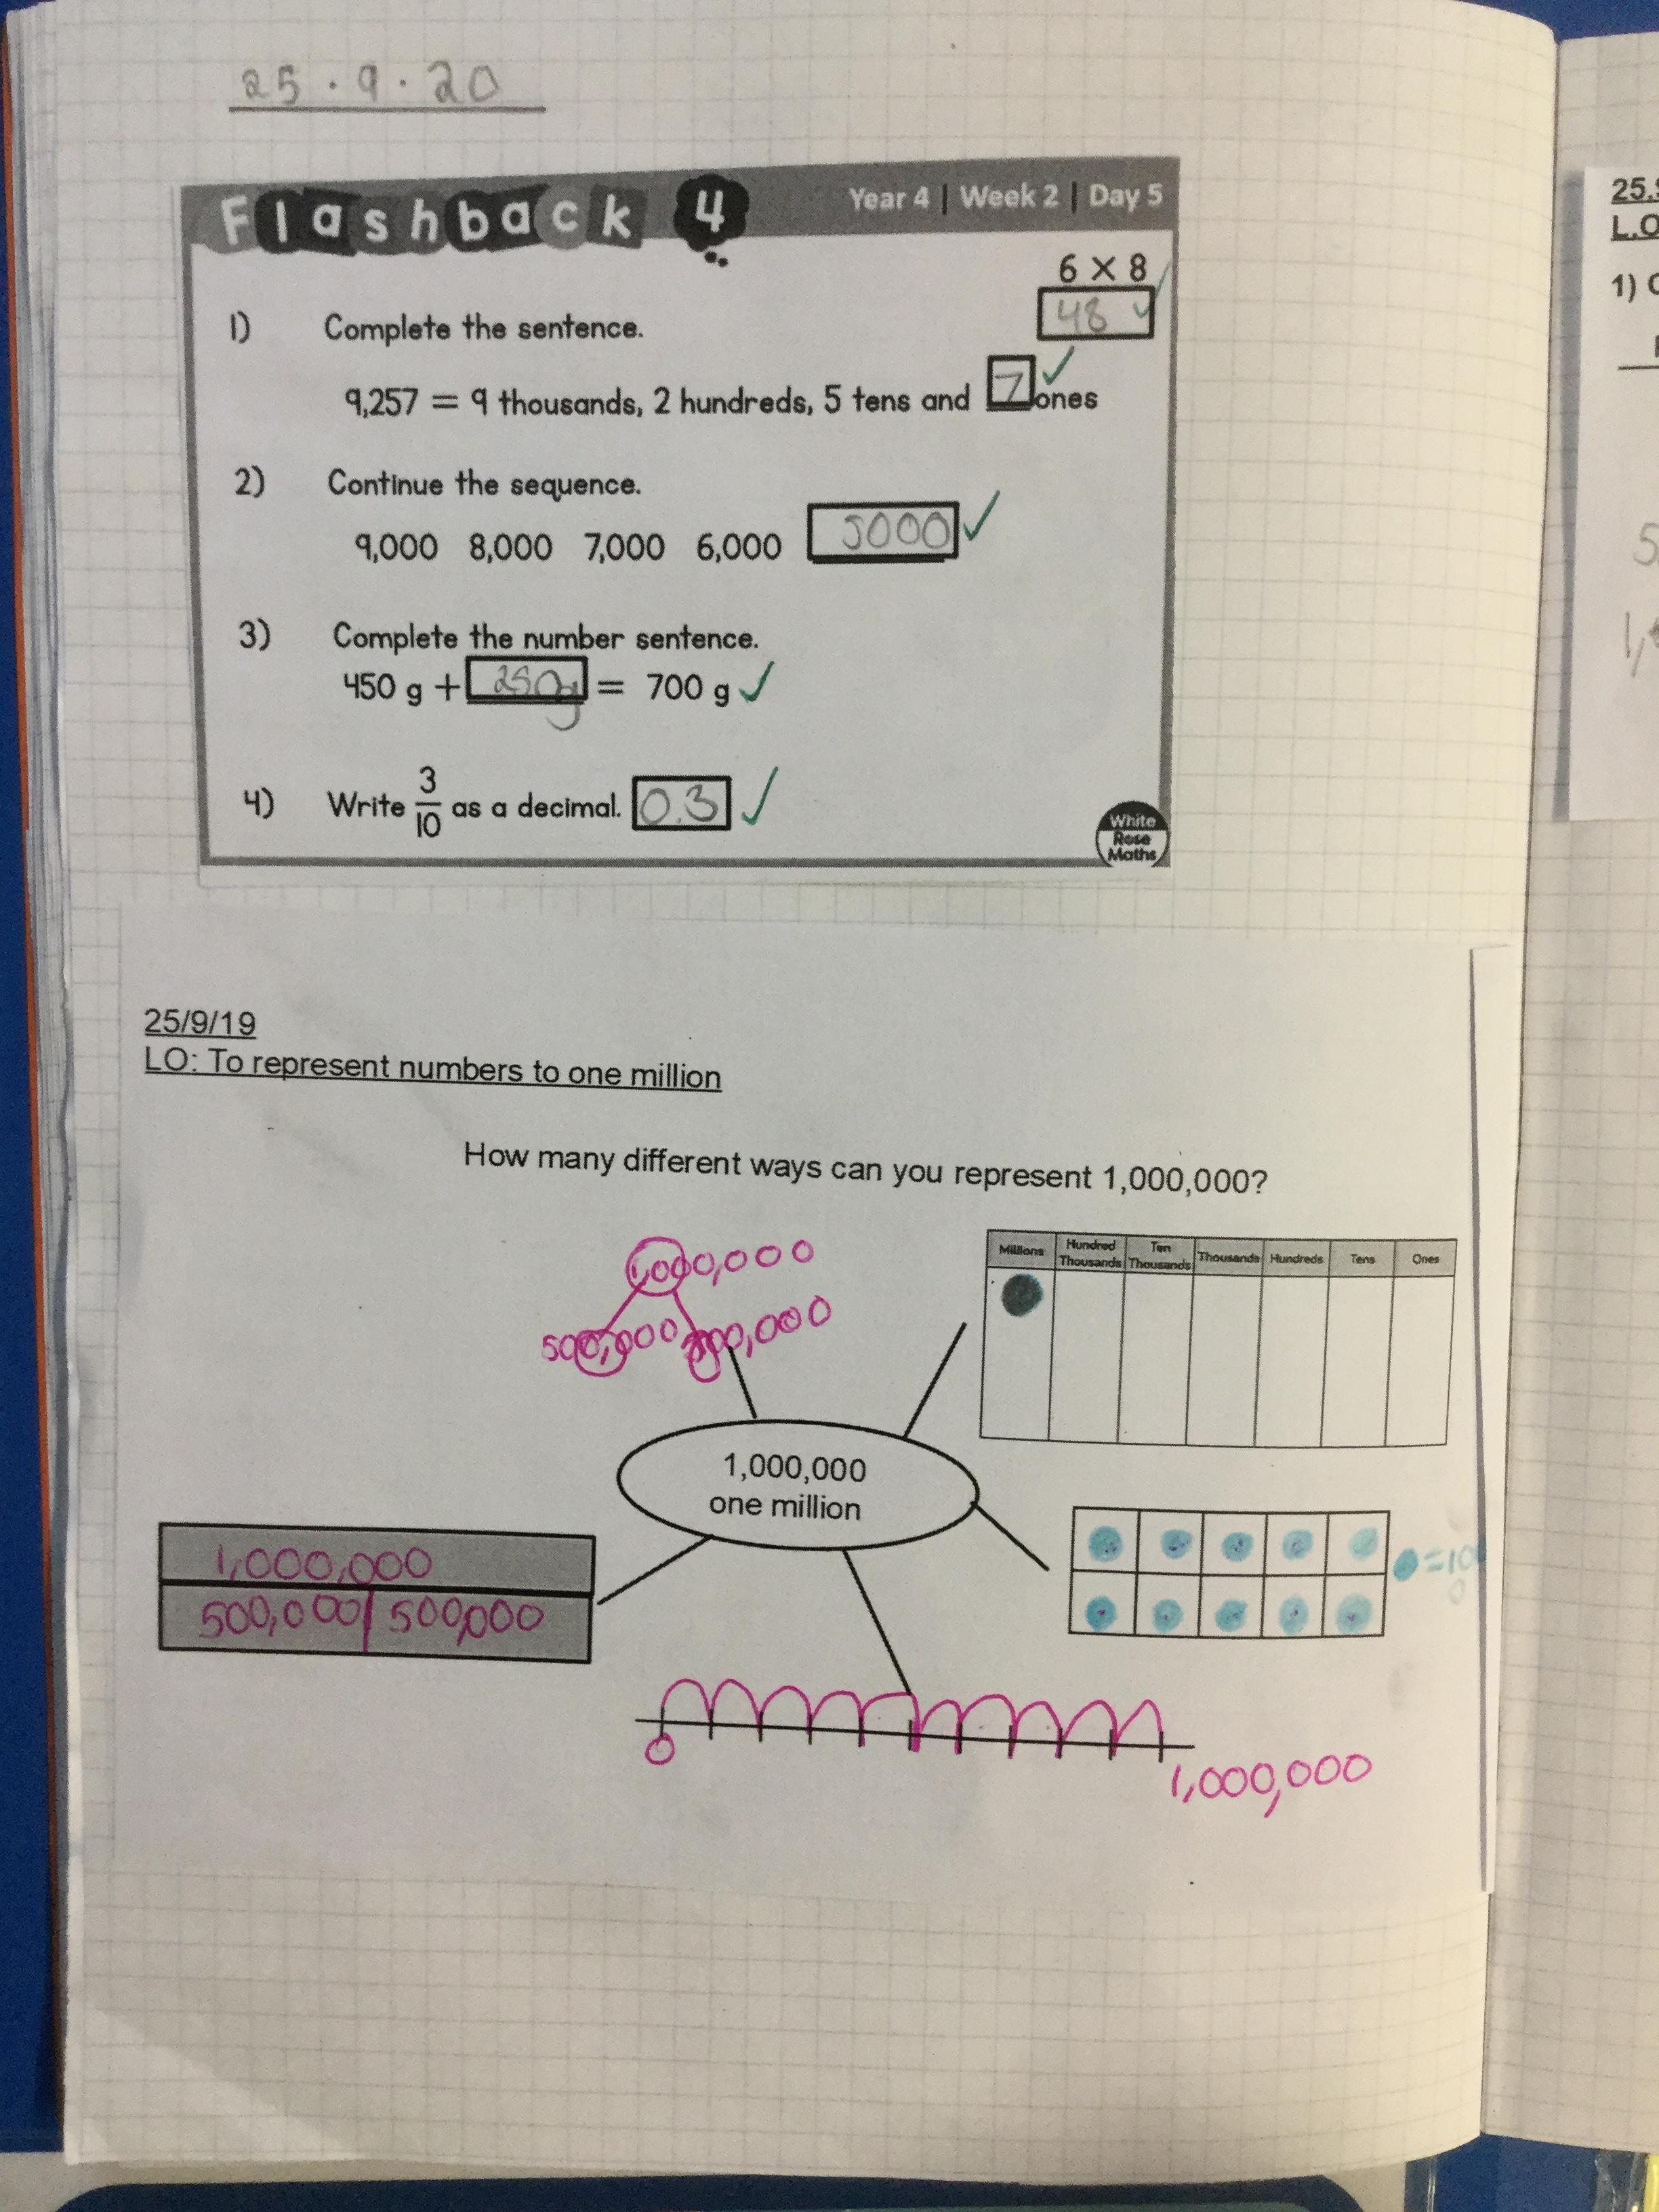 25.9.20
Flashback 4
Year 4 | Week 2 | Day 5
6 × 8
48
1) Complete the sentence.
9,257 = 9 thousands, 2 hundreds, 5 tens and 7 ones
2) Continue the sequence.
9,000 8,000 7,000 6,000 5000
3) Complete the number sentence.
450 g + 250g = 700 g
4) Write 3/10 as a decimal. 0.3
White
Rose
Maths
25/9/19
LO: To represent numbers to one million
How many different ways can you represent 1,000,000?
1,000,000
500,000 500,000
Millions Hundred Thousands Ten Thousands Thousands Hundreds Tens Ones
1,000,000
one million
1,000,000
500,000 500,000
0
1,000,000
25.
L.O
1)